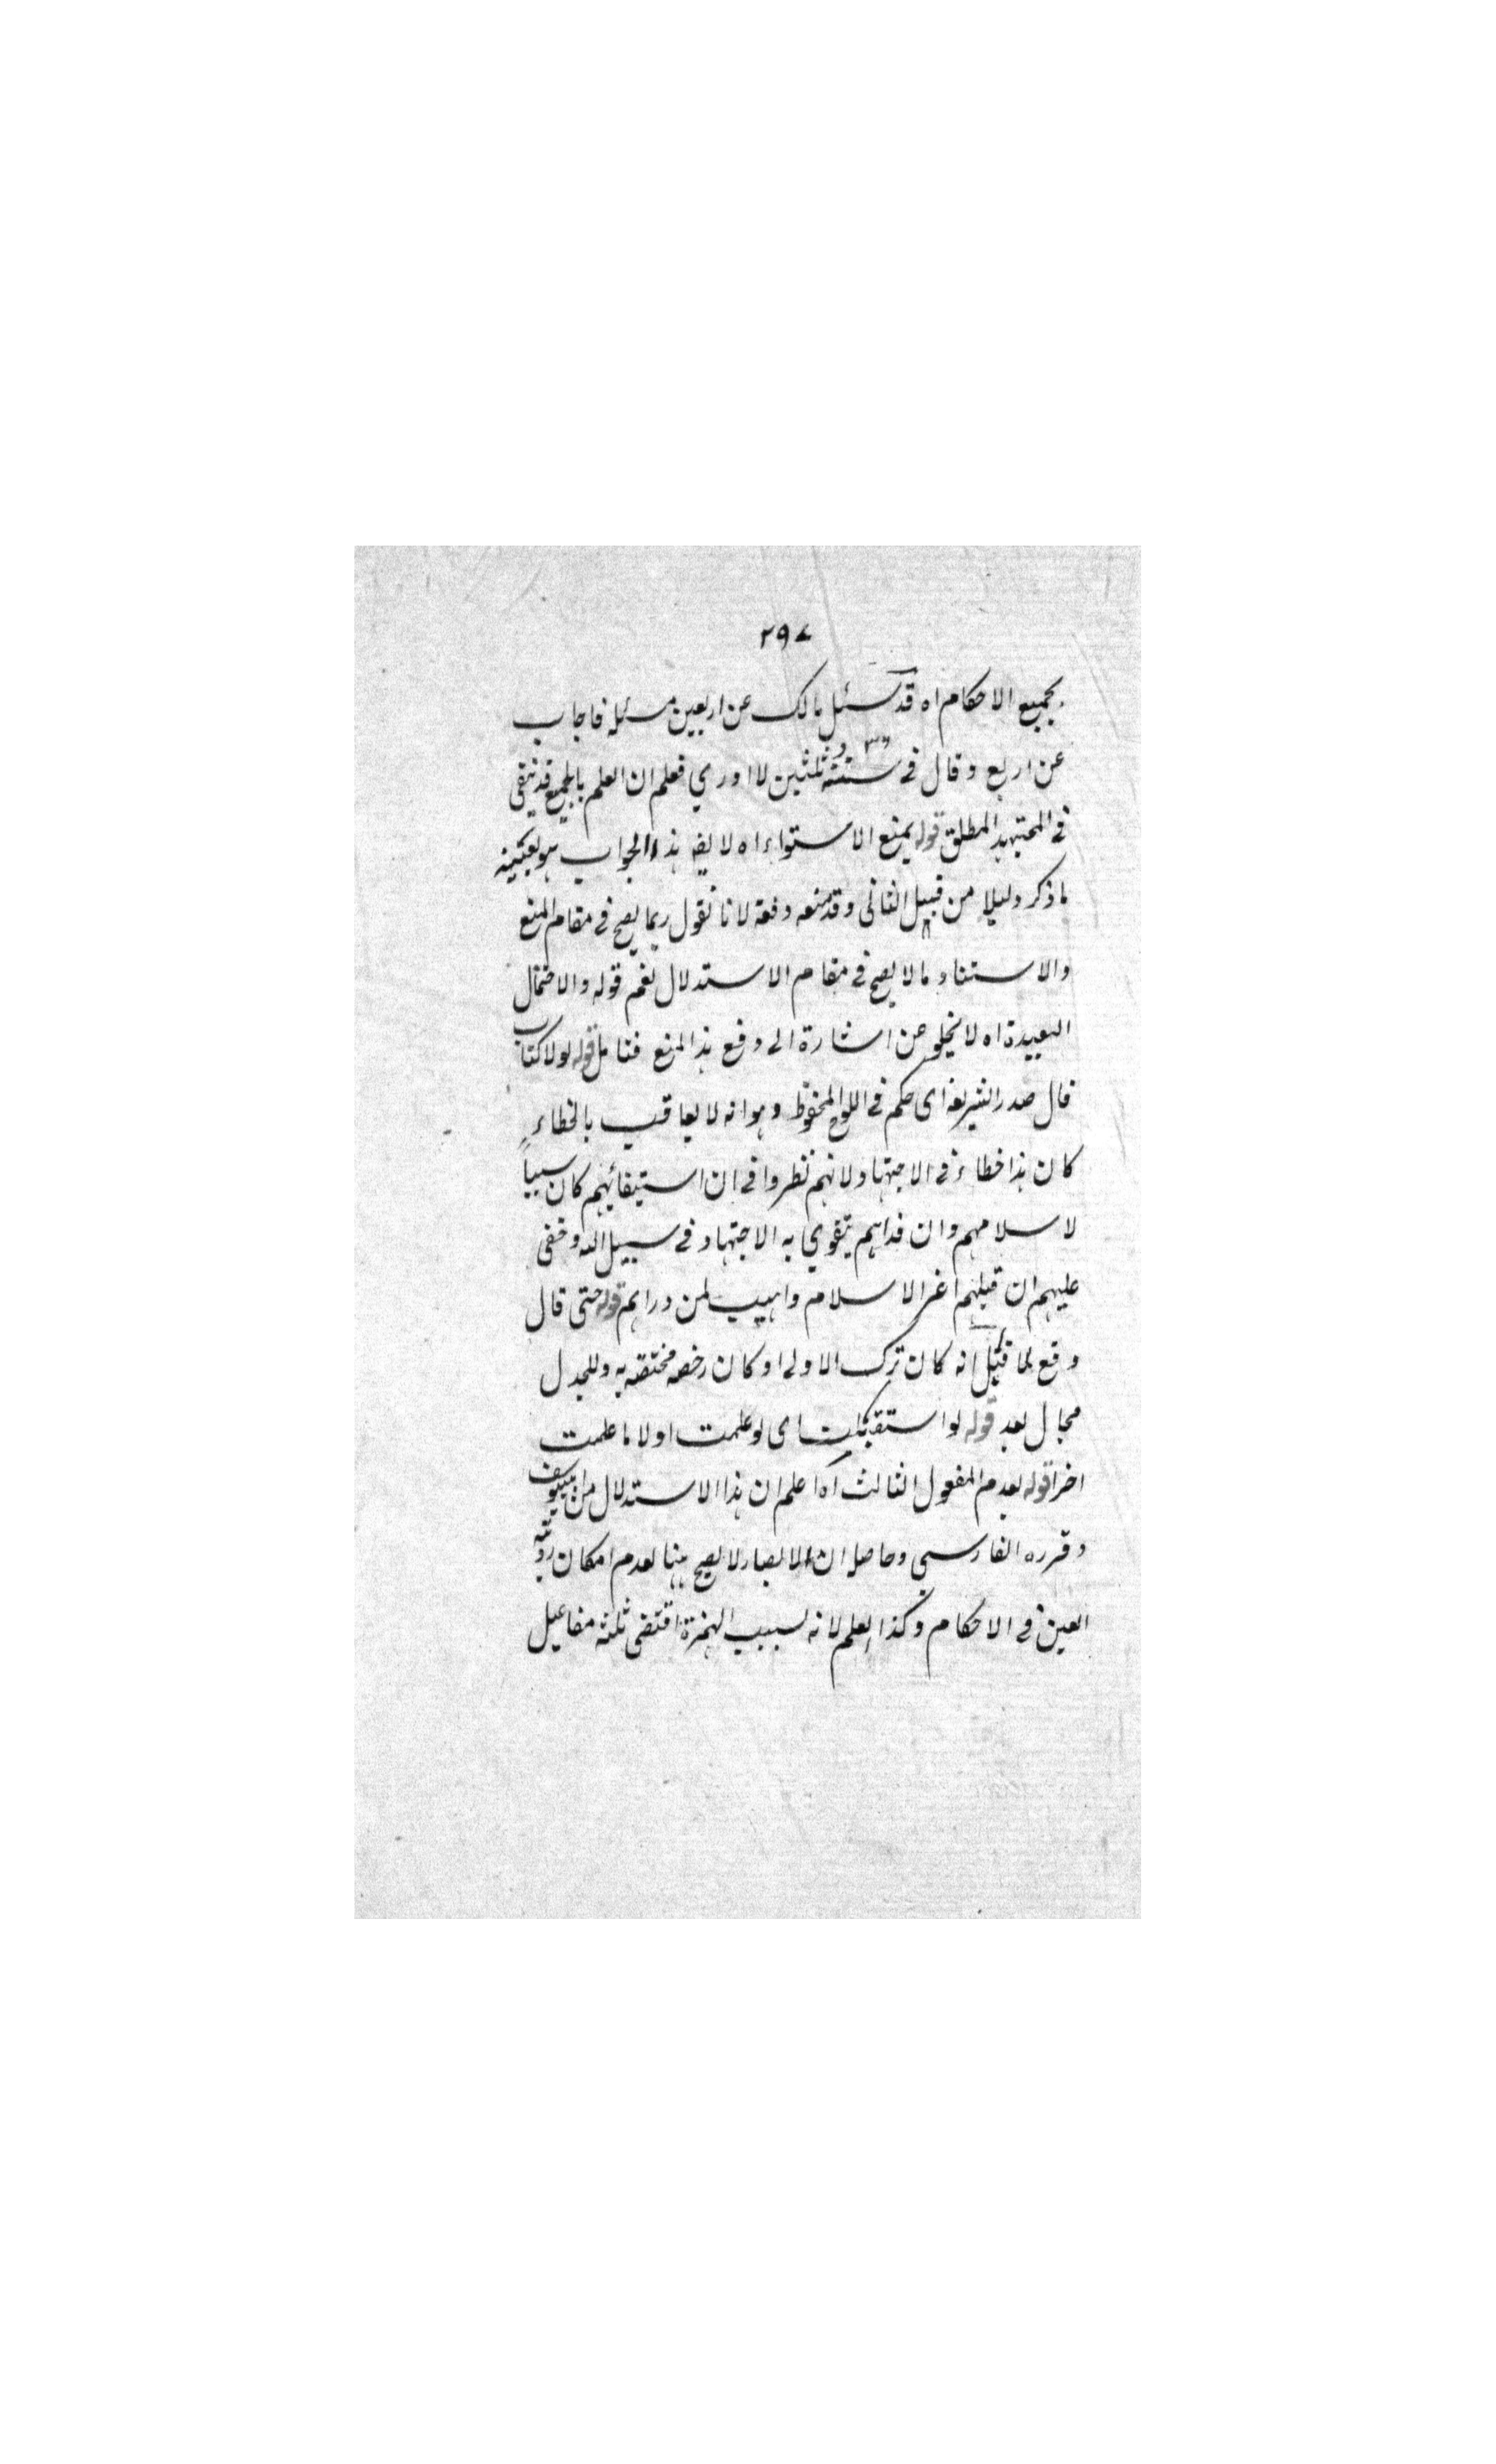 ٢٩٧
بجميع الاحكام اه قد سئل مالك عن اربعين مسئلة فاجاب
عن اربع وقال في ستة وثلثين لا ادري فعلم ان العلم بالجميع قد ينتفى
في المجتهد المطلق قوله يمنع الاستواء اه لا يقه هذا الجواب هو بعينه
ما ذكر دليلا من قبيل الثاني وقد منعه دفعة لانا نقول ربما يصح في مقام المنع
والاستناد ما لا يصح في مقام الاستدلال نعم قوله والاحتمال
البعيدة اه لا يخلو عن اشارة الى دفع هذا المنع فتامل قوله لولا كتاب
قال صدر الشريعة اى حكم في اللوح المحفوظ وهو انه لا يعاقب بالخطاء
كان هذا خطاء في الاجتهاد لانهم نظروا في ان استبقائهم كان سببا
لاسلامهم وان فداهم يتقوي به الاجتهاد في سبيل الله وخفى
عليهم ان قتلهم اعز الاسلام واهيب لمن ورائهم قوله حتى قال
وقع لما قيل انه كان ترك الاولى او كان رخصة مختصة به وللجدل
مجال بعد قوله لو استقبلت اى لو علمت اولا ما علمت
اخرا قوله بعدم المفعول الثالث اه اعلم ان هذا الاستدلال من ابييوسف
وقرره الفارسى وحاصله ان الابصار لا يصح هنا لعدم امكان روية
العين في الاحكام وكذا العلم لانه بسبب الهمزة اقتضى ثلثة مفاعيل